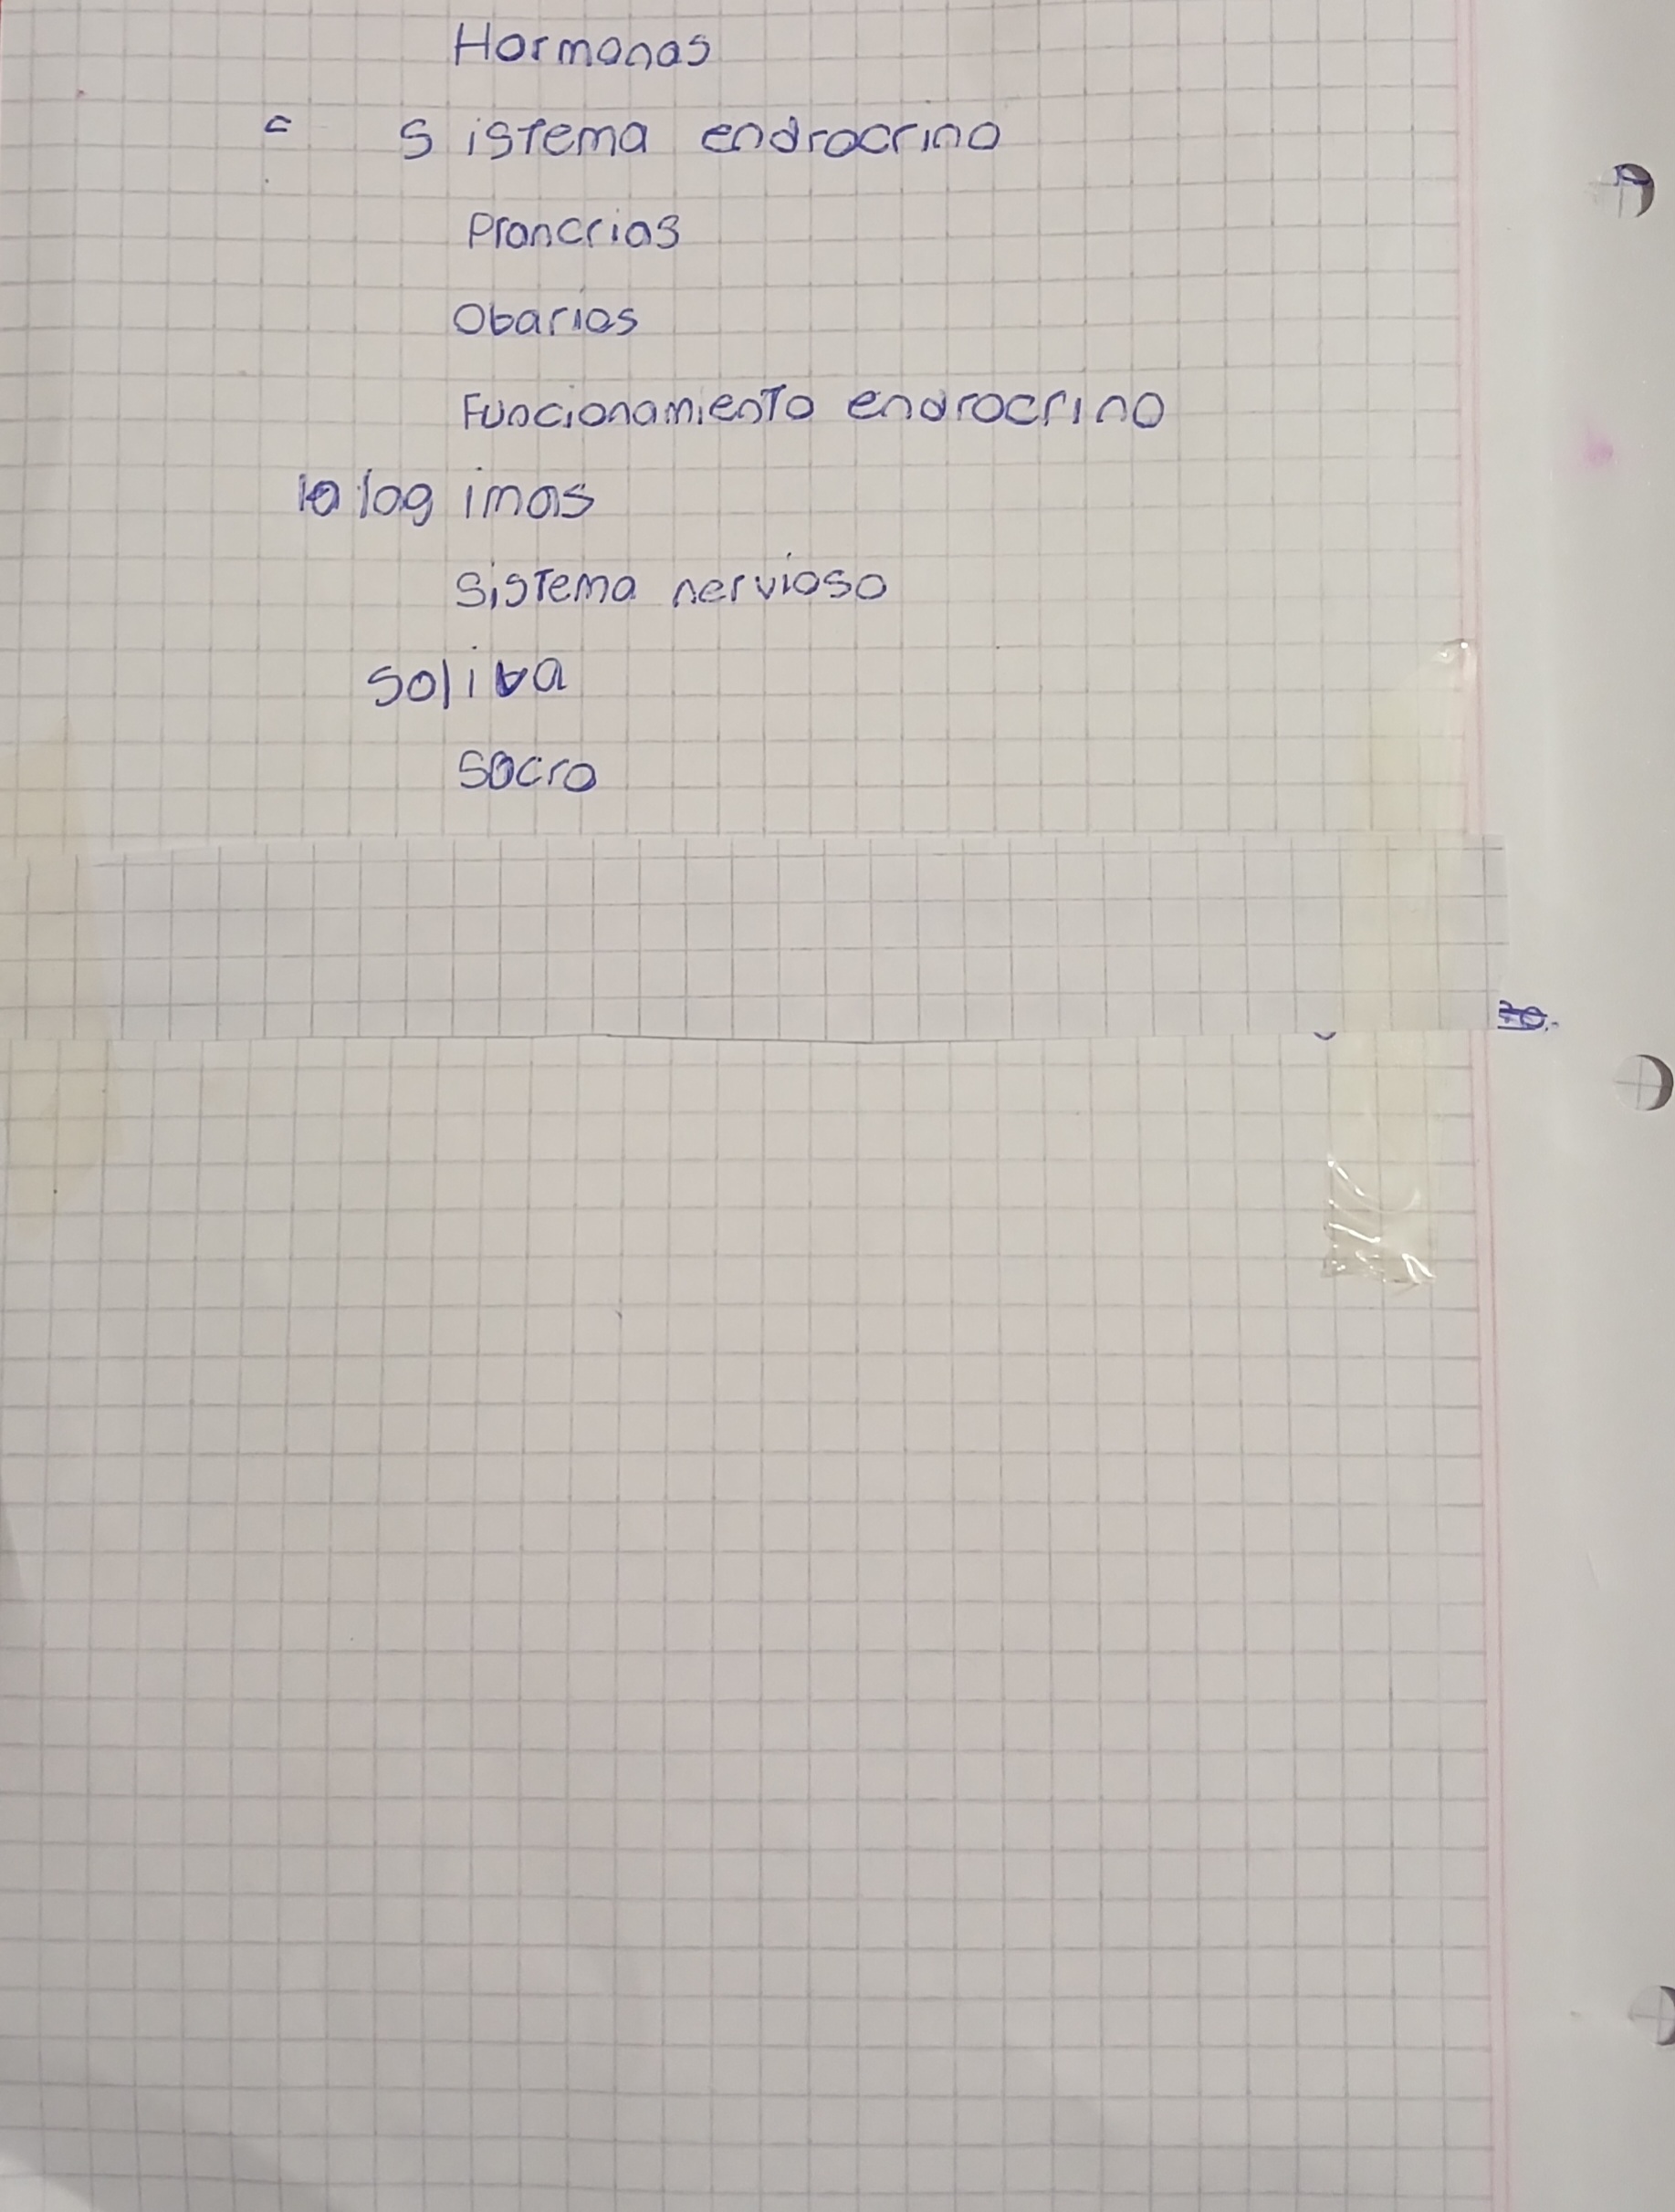 Hormonas
c sistema endrocrino
Prancrias
Obarios
Funcionamiento endrocrino
la log imas
Sistema nervioso
saliva
sacro